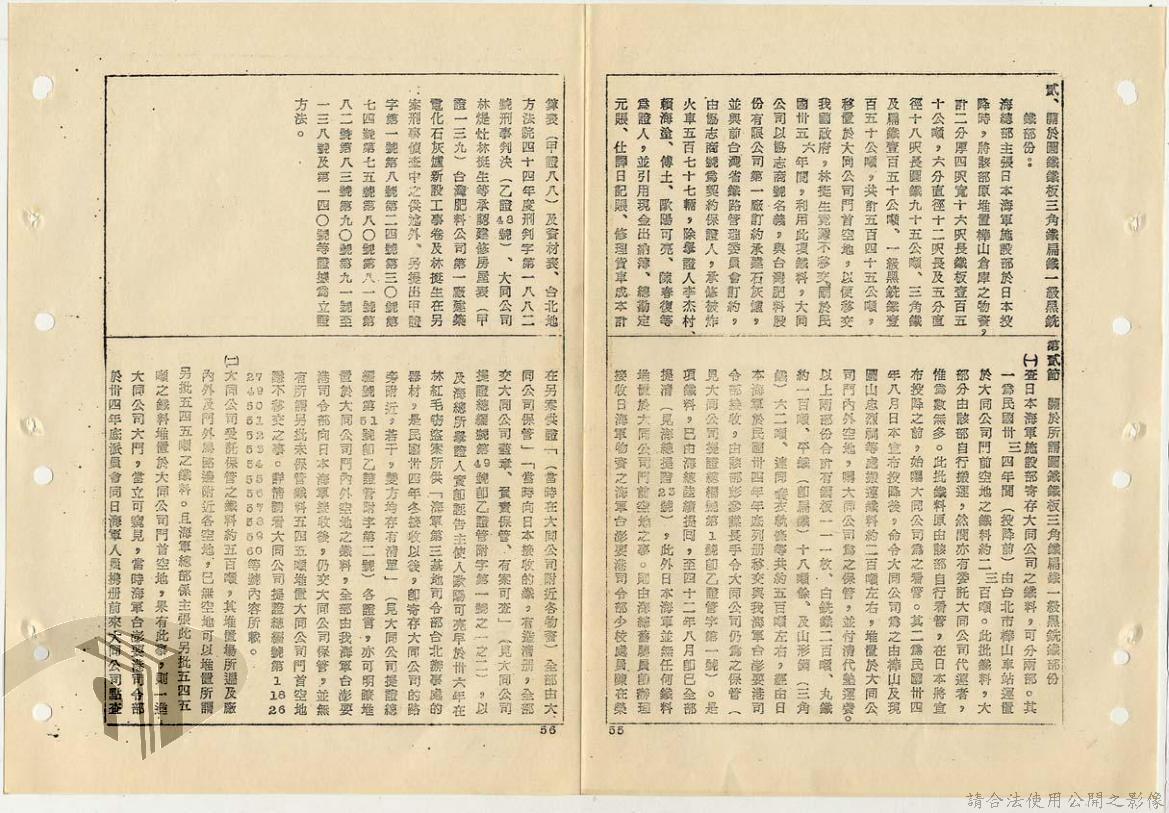 貳、關於圓鐵鐵板三角鐵扁鐵一級黑銑
鐵部份：
海總部主張日本海軍施設部於日本投
降時，將該部原堆置樺山倉庫之物資，
計二分厚四呎寬十六呎長鐵板壹百五
十公噸，六分直徑十二呎長及五分直
徑十八呎長圓鐵九十五公噸、三角鐵
及扁鐵壹百五十公噸、一級黑銑鐵壹
百五十公噸，共計五百四十五公噸，
移置於大同公司門首空地，以便移交
我國政府，林挺生竟隱不移交，嗣於民
國卅五六年間，利用此項鐵料，大同
公司以協志商號名義，與台灣肥料股
份有限公司第一廠訂約承建石灰爐，
並與前台灣省鐵路管理委員會訂約，
由協志商號為契約保證人，承修被炸
火車五百七十七輛，除舉證人李杰村、
賴海塗、傅土、歐陽可亮、陳春復等
為證人，並引用現金出納簿、總勘定
元賬、仕譯日記賬、修理貨車成本計
算表（甲證八八）及資材表、台北地
方法院四十四年度刑判字第一八八二
號刑事判決（乙證48號）、大同公司
林煶灶林挺生等承認建修房屋表（甲
證一三九）台灣肥料公司第一廠建築
電化石灰爐新設工事卷及林挺生在另
案刑事偵查中之供述外、另提出甲證
字第一號第八號第二四號第三〇號第
七四號第七五號第八〇號第八一號第
八二號第八三號第九〇號第九一號至
一三八號及第一四〇號等證據為立證
方法。
第貳節　關於所謂圓鐵鐵板三角鐵扁鐵一級黑銑鐵部份
㈠查日本海軍施設部寄存大同公司之鐵料，可分兩部。其
一為民國卅三四年間（投降前）由台北市樺山車站運置
於大同公司門前空地之鐵料約二三百噸。此批鐵料，大
部分由該部自行搬運，然間亦有委託大同公司代運者，
惟為數無多。此批鐵料原由該部自行看管，在日本將宣
布投降之前，始囑大同公司為之看管。其二為民國卅四
年八月日本宣布投降後，命令大同公司為之由樺山及現
圓山忠烈祠等處搬運鐵料約二百噸左右，堆置於大同公
司門內外空地，囑大同公司為之保管，並付清代墊運費。
以上兩部份合計有鋼板一一一枚、白銑鐵二百噸、丸鐵
約一百噸、平鐵（即扁鐵）十八噸餘、及山形鋼（三角
鐵）六二噸、連同 軌條等共約五百噸左右，經由日
本海軍於民國卅四年年底列册移交與我海軍台澎要港司
令部接收，由該部彭參謀長手令大同公司仍為之保管（
見大同公司提證總編號第1號即乙證管字第一號）。是
項鐵料，已由海總陸續提回，至四十二年八月即已全部
提清（見海總提證23號），此外日本海軍並無任何鐵料
堆置於大同公司門前空地之事。則由海總舊聘員節辦理
接收日海軍物資之海軍台澎要港司令部少校處員陳在榮
在另案供證「（當時在大同公司附近各物資）全部由大
同公司保管」「當時向日本接收的鐵，有造清册，全部
交大同公司蓋章、負責保管、有案可查」（見大同公司
提證總編號第49號即乙證管附字第一號之一之二），以
及海總所舉證人實即誣告主使人歐陽可亮早於卅六年在
林紅毛竊盜案所供「海軍第三基地司令部台北辦事處的
器材，是民國卅四年冬接收以後，即寄存大同公司的路
旁附近，若干，雙方均存有清單」（見大同公司提證總
編號第51號即乙證管附字第二號）各證言，亦可明瞭堆
置於大同公司門內外空地之鐵料，全部由我海軍台澎要
港司令部向日本海軍接收後，仍交大同公司保管，並無
有所謂另批未保管鐵料五四五噸堆置大同公司門首空地
隱不移交之事。詳情請看大同公司提證總編號第1 18 26
等號內容所載。
㈡大同公司受託保管之鐵料約五百噸，其堆置場所遍及廠
內外及門外馬路邊附近各空地，已無空地可以堆置所謂
另批五四五噸之鐵料。且海軍總部係主張此另批五四五
噸之鐵料堆置於大同公司門首空地，果有此事，則一進
大同公司大門，當立可窺見，當時海軍台澎要港司令部
於卅四年底派員會同日海軍人員携册前來大同公司點查
55
56
請合法使用公開之影像